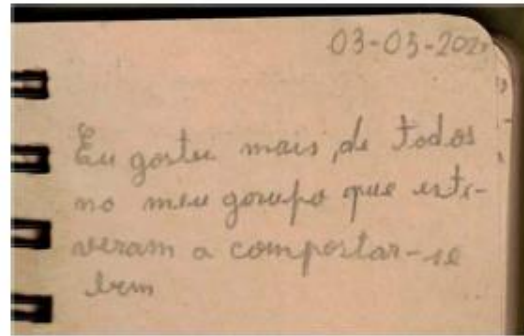 03-03-202
Eu gostei mais, de todos
no meu gorupo que este-
veram a comportar-se
bem